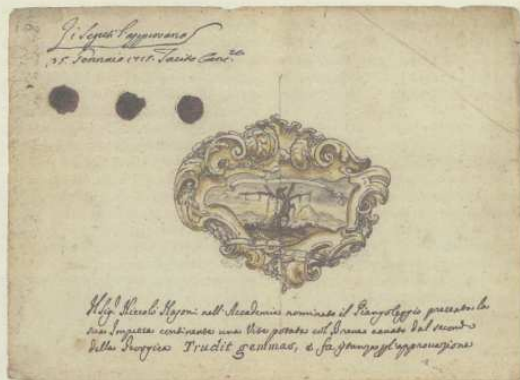 Si segreti l'approvano
25. Gennaio 1755. Tacito Canc.re
Il Sig.r Niccolò Masoni nell'Accademia nominato il Piangoleggio presenta la
sua Impresa continente una Vite potata col Breve cavato dal secondo
della Georgica Trudit gemmas, e fa istanza per l'approvazione